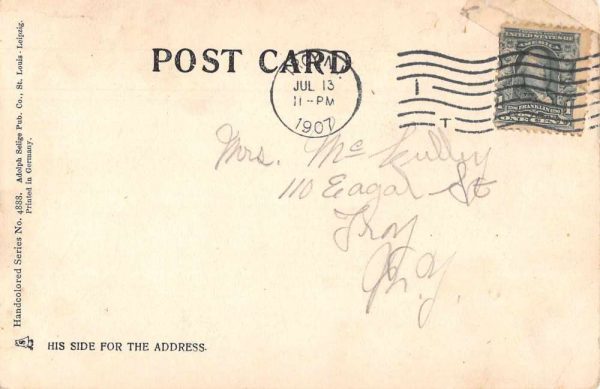 POST CARD
JUL 13
11-PM
1907
1
T
UNITED STATES OF
AMERICA
FRANKLIN
ONE CENT
Mrs. Mc Culley
110 Eagar St
Troy
N.Y.
Handcolored Series No. 4888. Adolph Selige Pub. Co., St. Louis-Leipzig.
Printed in Germany.
HIS SIDE FOR THE ADDRESS.